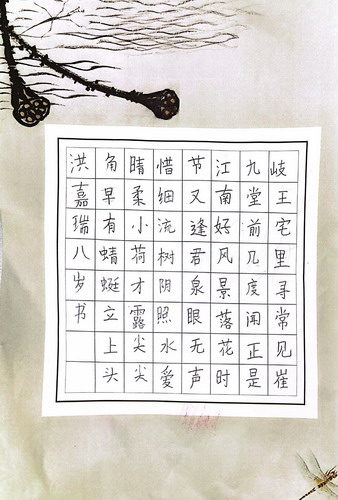 岐王宅里寻常见崔
九堂前几度闻正是
江南好风景落花时
节又逢君泉眼无声
惜细流树阴照水爱
晴柔小荷才露尖尖
角早有蜻蜓立上头
洪嘉瑞八岁书